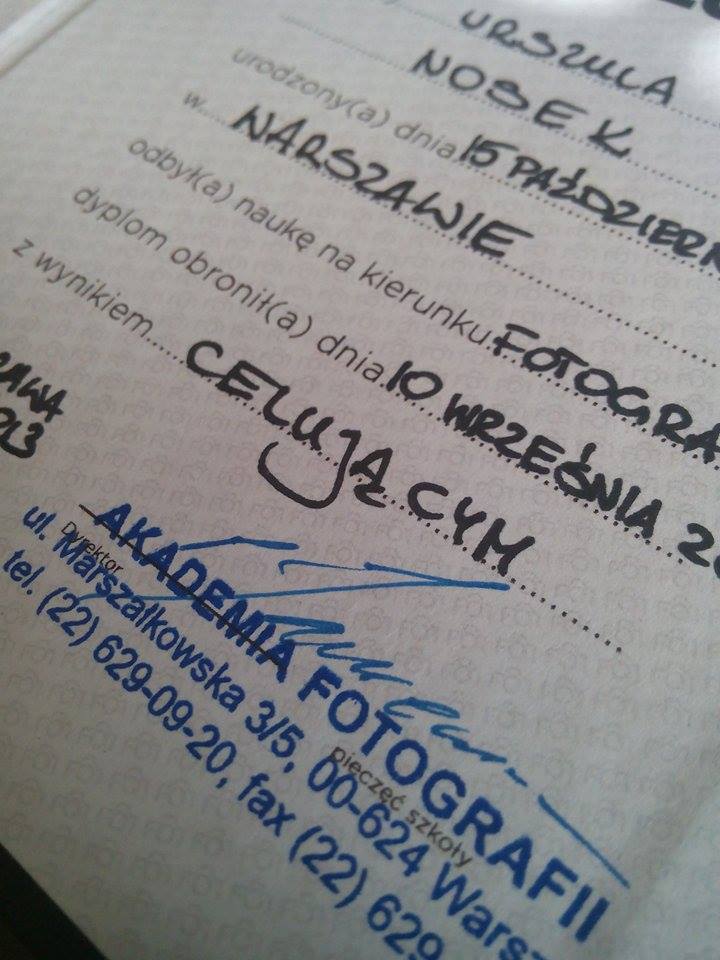 URSZULA
NOSEK
urodzony(a) dnia 15 PAŹDZIERN
w NARSZAWIE
odbył(a) naukę na kierunku FOTOGRA
dyplom obronił(a) dnia 10 WRZEŚNIA 20
z wynikiem CELUJĄCYM
AWA
013
Dyrektor
pieczęć szkoły
AKADEMIA FOTOGRAFII
ul. Marszałkowska 3/5, 00-624 Warsz
tel. (22) 629-09-20, fax (22) 629